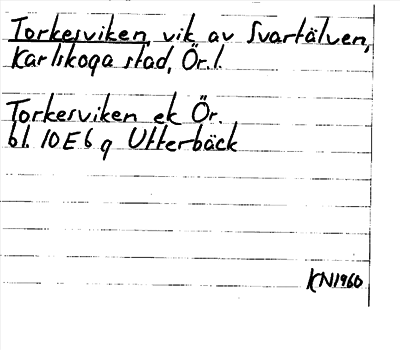 Torkesviken, vik av Svartälven,
Karlskoga stad, Ör.l.
Torkesviken ek Ör.
bl. 10E6g Utterbäck
KN1960